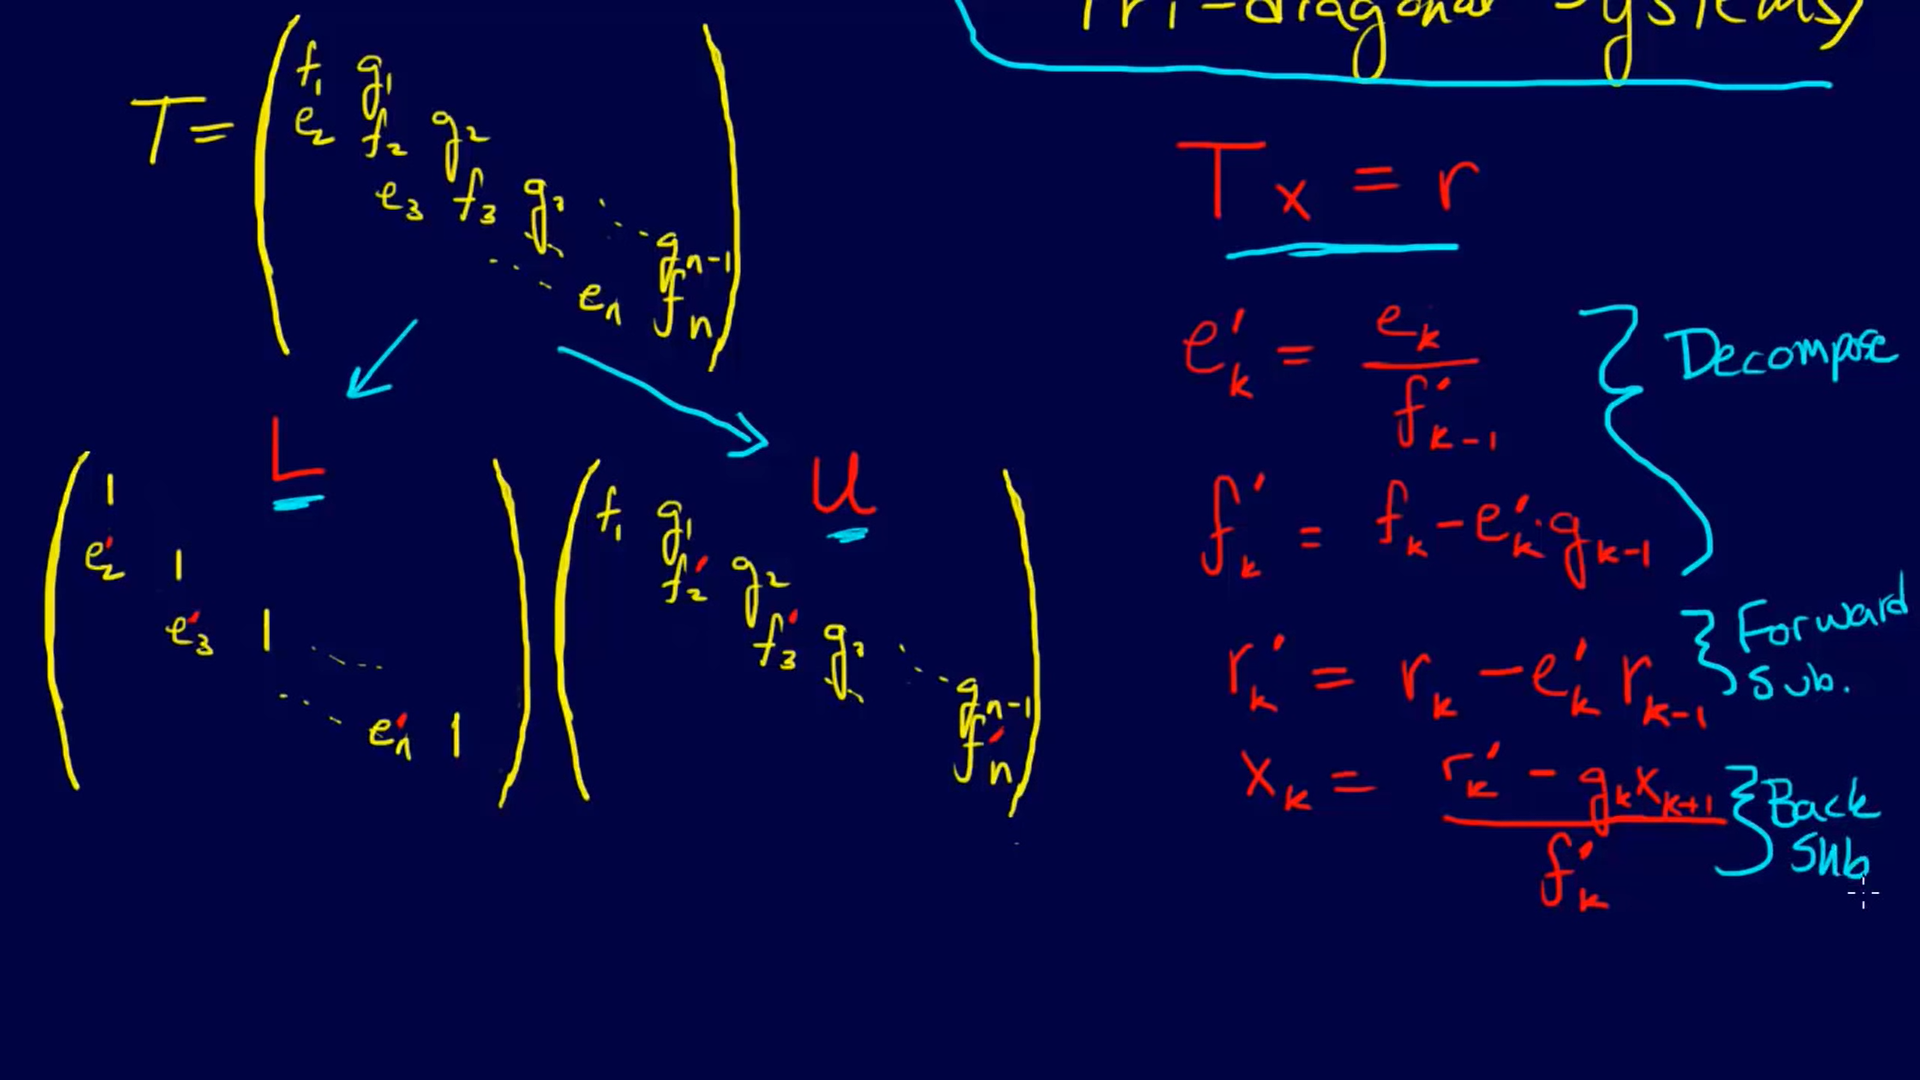 Tri-diagonal Systems)
T = ( f₁ g₁
e₂ f₂ g₂
e₃ f₃ g₃ ⋱ gₙ₋₁
⋱ eₙ fₙ )
T x = r
L
U
( 1
e'₂ 1
e'₃ 1 ⋱
⋱ e'ₙ 1 )
( f₁ g₁
f'₂ g₂
f'₃ g₃ ⋱ gₙ₋₁
f'ₙ )
e'ₖ = eₖ / f'ₖ₋₁
f'ₖ = fₖ - e'ₖ · gₖ₋₁
} Decompose
r'ₖ = rₖ - e'ₖ rₖ₋₁
} Forward
Sub.
xₖ = (r'ₖ - gₖxₖ₊₁) / f'ₖ
} Back
Sub